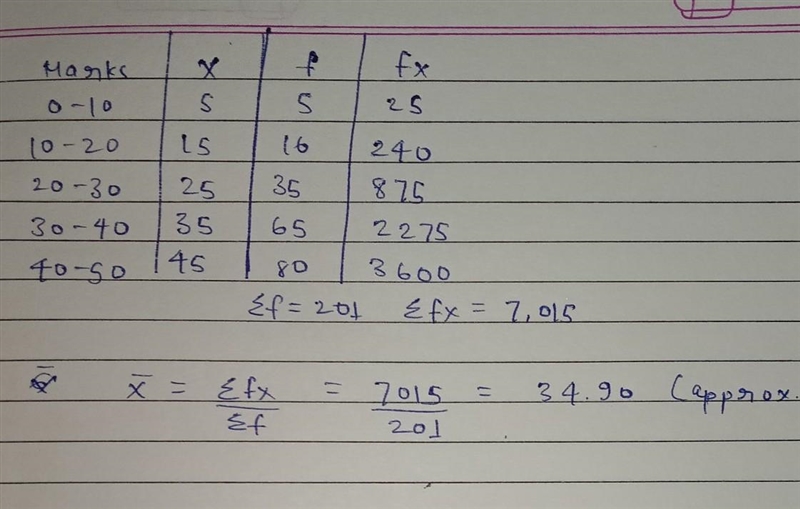 Marks x f fx
0-10 5 5 25
10-20 15 16 240
20-30 25 35 875
30-40 35 65 2275
40-50 45 80 3600
Σf = 201 Σfx = 7,015
x̄ = Σfx / Σf = 7015 / 201 = 34.90 (approx.